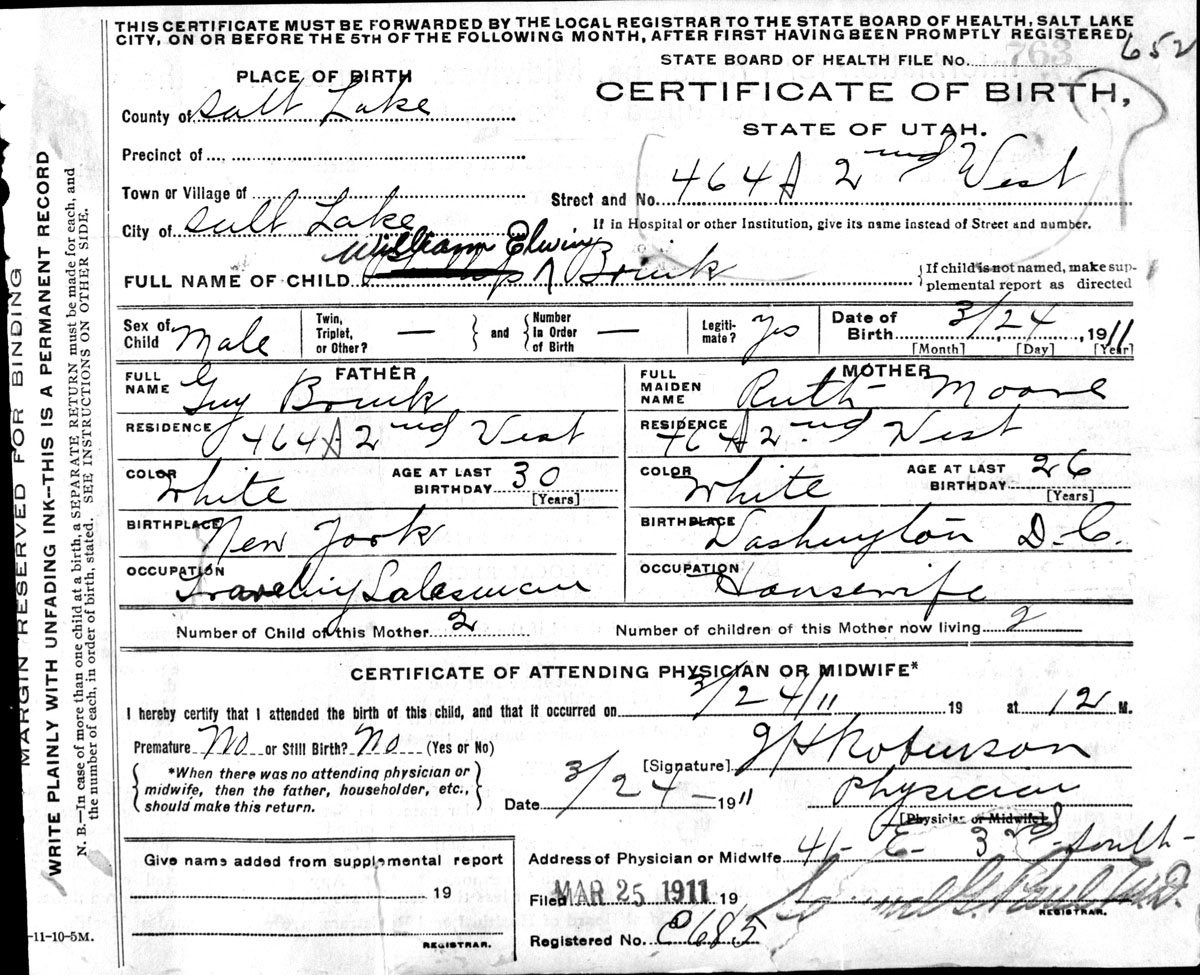 THIS CERTIFICATE MUST BE FORWARDED BY THE LOCAL REGISTRAR TO THE STATE BOARD OF HEALTH, SALT LAKE
CITY, ON OR BEFORE THE 5TH OF THE FOLLOWING MONTH, AFTER FIRST HAVING BEEN PROMPTLY REGISTERED.
STATE BOARD OF HEALTH FILE No. 763 652
PLACE OF BIRTH
CERTIFICATE OF BIRTH,
STATE OF UTAH.
County of Salt Lake
Precinct of
Town or Village of
Street and No. 464A 2nd West
City of Salt Lake
If in Hospital or other Institution, give its name instead of Street and number.
William
FULL NAME OF CHILD Brink
{If child is not named, make sup-
plemental report as directed
Sex of Child Male
Twin, Triplet, or Other? — } and { Number in Order of Birth —
Legiti- mate? Yes
Date of Birth 3/24, 1911
[Month] [Day] [Year]
FATHER
FULL NAME Guy Brink
RESIDENCE 464A 2nd West
COLOR White
AGE AT LAST BIRTHDAY 30 [Years]
BIRTHPLACE New York
OCCUPATION Traveling Salesman
MOTHER
FULL MAIDEN NAME Ruth Moore
RESIDENCE 464A 2nd West
COLOR White
AGE AT LAST BIRTHDAY 26 [Years]
BIRTHPLACE Washington D.C.
OCCUPATION Housewife
Number of Child of this Mother 2
Number of children of this Mother now living 2
CERTIFICATE OF ATTENDING PHYSICIAN OR MIDWIFE*
I hereby certify that I attended the birth of this child, and that it occurred on 3/24/11 19 at 12 M.
Premature No or Still Birth? No (Yes or No)
{ *When there was no attending physician or
midwife, then the father, householder, etc.,
should make this return. }
[Signature] Robinson
Date 3/24 — 1911
Physician
[Physician or Midwife]
Address of Physician or Midwife 41- E- 3rd South-
Give name added from supplemental report
19
REGISTRAR.
Filed MAR 25 1911 19
REGISTRAR.
Registered No. 685
-11-10-5M.
MARGIN RESERVED FOR BINDING
WRITE PLAINLY WITH UNFADING INK—THIS IS A PERMANENT RECORD
N. B.—In case of more than one child at a birth, a SEPARATE RETURN must be made for each, and
the number of each, in order of birth, stated. SEE INSTRUCTIONS ON OTHER SIDE.